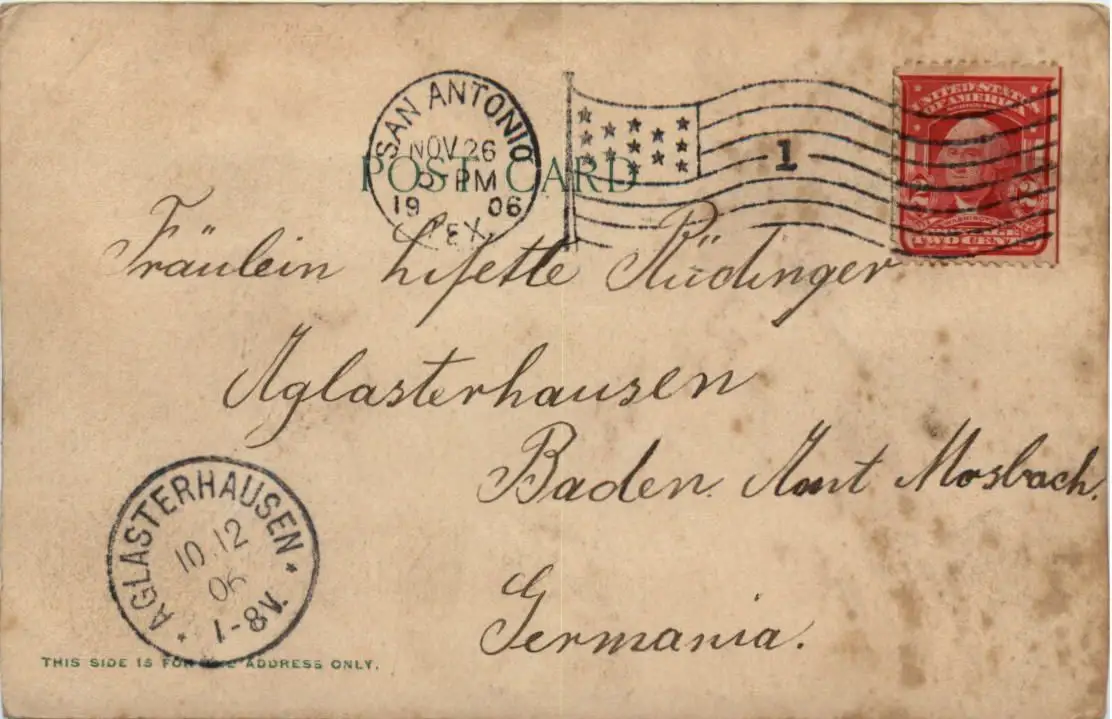 SAN ANTONIO
NOV 26
PM
19 06
TEX.
1
UNITED STATES
OF AMERICA
2 2
WASHINGTON
TWO CENTS
POST CARD
Fräulein Lisette Rüdinger
Aglasterhausen
Baden. Amt Mosbach.
Germania.
* AGLASTERHAUSEN *
10 12
06
1-8V.
THIS SIDE IS FOR THE ADDRESS ONLY.